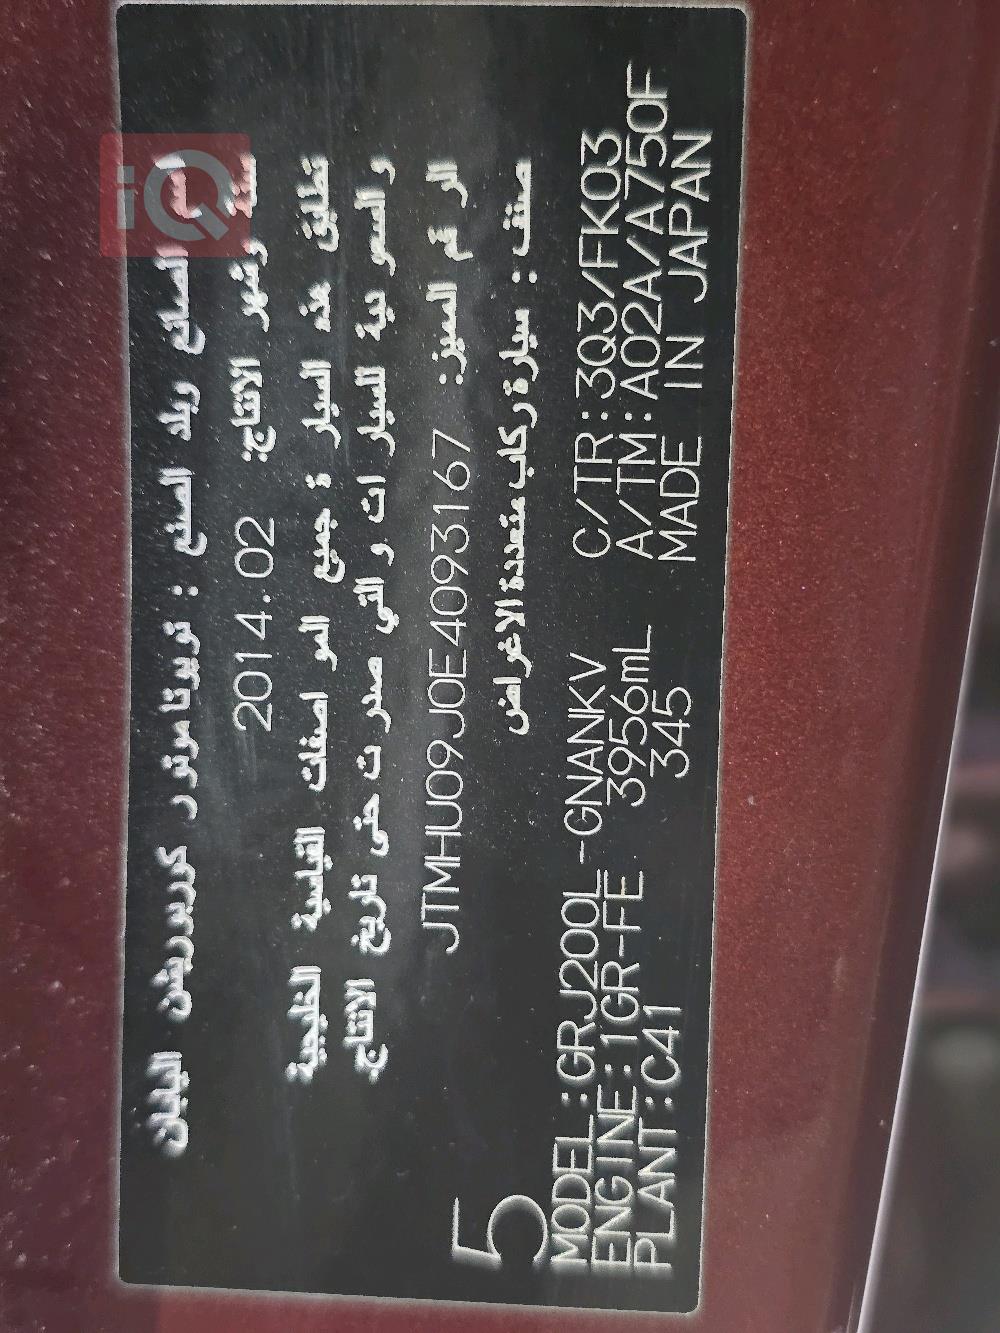 iQ
اسم الصانع وبلد الصنع : تويوتا موتور كوربوريشن اليابان
سنة وشهر الانتاج: 2014.02
تطابق هذه السيارة جميع المواصفات القياسية الخليجية
والسعودية للسيارات والتي صدرت حتى تاريخ الانتاج.
الرقم المميز: JTMHU09J0E4093167
صنف : سيارة ركاب متعددة الاغراض
5
MODEL :GRJ200L-GNANKV C/TR:3Q3/FK03
ENGINE:1GR-FE 3956mL A/TM:A02A/A750F
PLANT:C41 345 MADE IN JAPAN